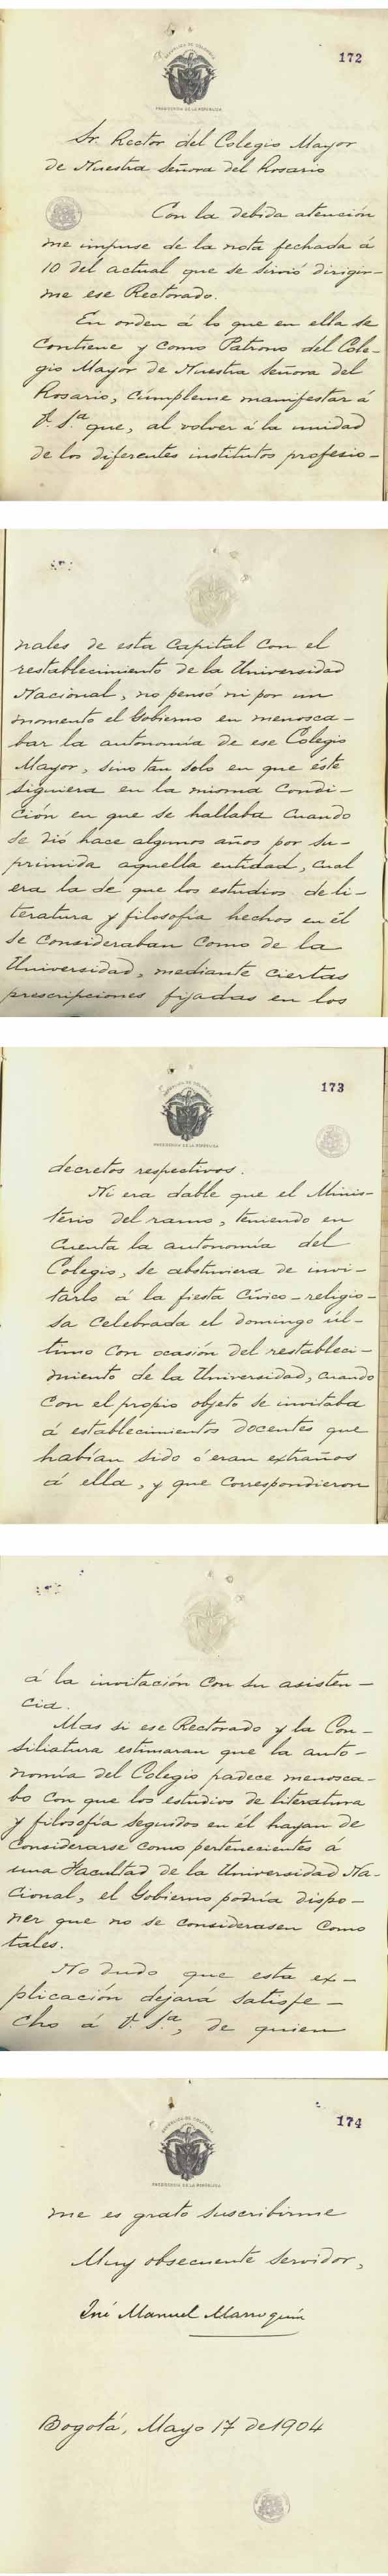 172
REPUBLICA DE COLOMBIA
PRESIDENCIA DE LA REPUBLICA
Sr. Rector del Colegio Mayor
de Nuestra Señora del Rosario
Con la debida atención
me impuse de la nota fechada á
10 del actual que se sirvió dirigir-
me ese Rectorado.
En orden á lo que en ella se
contiene y como Patrono del Cole-
gio Mayor de Nuestra Señora del
Rosario, cúmpleme manifestar á
V. S.ª que, al volver á la unidad
de los diferentes institutos profesio-
nales de esta Capital con el
restablecimiento de la Universidad
Nacional, no pensó ni por un
momento el Gobierno en menosca-
bar la autonomía de ese Colegio
Mayor, sino tan solo en que éste
siguiera en la misma condi-
ción en que se hallaba cuando
se dió hace algunos años por su-
primida aquella entidad, cual
era la de que los estudios de li-
teratura y filosofía hechos en él
se consideraban como de la
Universidad, mediante ciertas
prescripciones fijadas en los
173
REPUBLICA DE COLOMBIA
PRESIDENCIA DE LA REPUBLICA
decretos respectivos.
Ni era dable que el Minis-
terio del ramo, teniendo en
cuenta la autonomía del
Colegio, se abstuviera de invi-
tarlo á la fiesta cívico-religio-
sa celebrada el domingo úl-
timo con ocasión del restableci-
miento de la Universidad, cuando
con el propio objeto se invitaba
á establecimientos docentes que
habían sido ó eran extraños
á ella, y que correspondieron
á la invitación con su asisten-
cia.
Mas si ese Rectorado y la Con-
siliatura estimaran que la auto-
nomía del Colegio padece menosca-
bo con que los estudios de literatura
y filosofía seguidos en él hayan de
considerarse como pertenecientes á
una Facultad de la Universidad Na-
cional, el Gobierno podría dispo-
ner que no se considerasen como
tales.
No dudo que esta ex-
plicación dejará satisfe-
cho á V. S.ª, de quien
174
REPUBLICA DE COLOMBIA
PRESIDENCIA DE LA REPUBLICA
me es grato suscribirme
Muy obsecuente servidor,
José Manuel Marroquín
Bogotá, Mayo 17 de 1904